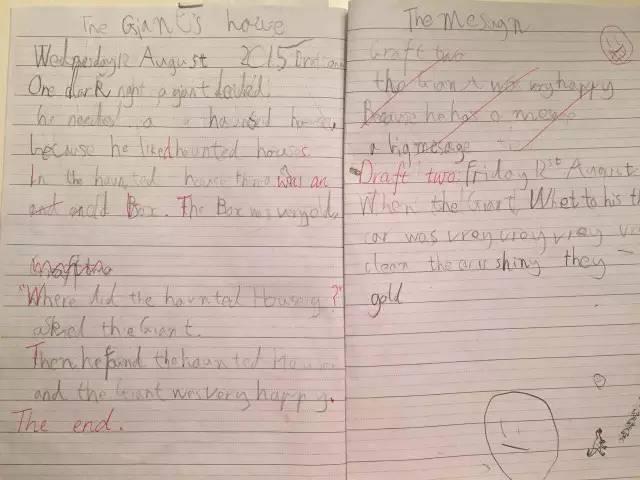 The Giant's house
Wednesday 12 August 2015
One dark night a giant
he needed a a haunted house
because he liked haunted houses
In the haunted house was an
and an old Box. The Box was very old
"Where did the haunted House g?"
asked the Giant.
Then he found the haunted House
and the Giant was very happy.
The end.
The Mesugn
Graft two
the Giant was very happy
Because he has a
a big mesage
Draft two friday 12st August
When the Giant Whet to his
car was vrey vrey vrey
clean the car shing they
gold